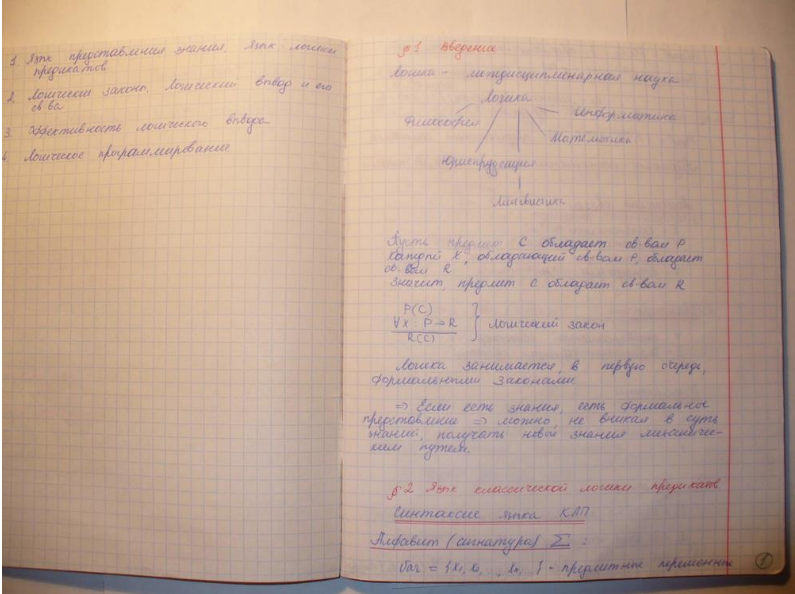 1. Язык представления знания. Язык логики
предикатов
2. Логические законы. Логический вывод и его
св-ва
3. Эффективность логического вывода
4. Логическое программирование
§1 Введение
Логика - междисциплинарная наука
Логика
Философия
Информатика
Математика
Юриспруденция
Лингвистика
Пусть предмет C обладает св-вом P
Каждый X, обладающий св-вом P, обладает
св-вом R
Значит, предмет C обладает св-вом R
P(C)
∀x: P→R } логический закон
R(C)
Логика занимается, в первую очередь,
формальными законами
=> Если есть знания, есть формальное
представление => можно, не вникая в суть
знаний, получать новые знания механичес-
ким путем.
§2 Язык классической логики предикатов
Синтаксис языка КЛП
Алфавит (сигнатура) Σ :
Var = {x₁, x₂, ..., xₖ, } - предметные переменные
1